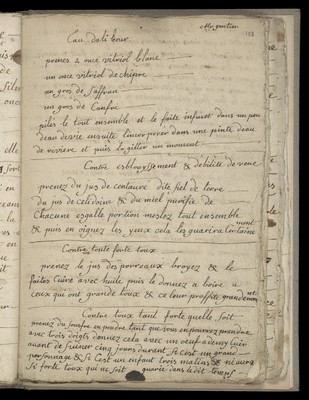 Eau dalibour
prenes 2 once vitriol blanc
un once vitriol de chipre
un gros de Saffran
un gros de Canfre
pilés le tout ensemble et le faite infuser dans un peu
deau devie ensuite dans une pinte deau
de reviere et puis la un moment
Contre esblouyssement & debilité de veue
prenez du jus de centaure dite fiel de terre
du jus de celidoine & du miel purifié De
Chacune esgalle portion meslez tout ensemble
& puis en oignez les yeux cela les guarira Certainement
Contre toute forte toux
prenez le jus des pourreaux broyez & le
faites Cuire avec huile puis le donnez a boire a
ceux qui ont grande toux & ce leur proffite grandement
Contre toux tant forte quelle soit
prenez du soufre en poudre tant que vous en pourrez prendre
avec trois doigts donnez cela avec un oeuf a demy Cuit
avant de jeuner cinq jours durant si cest un grand
personnage & si Cest un enfant trois matins & naura
si forte toux qui ne soit guarie dans le dit temps